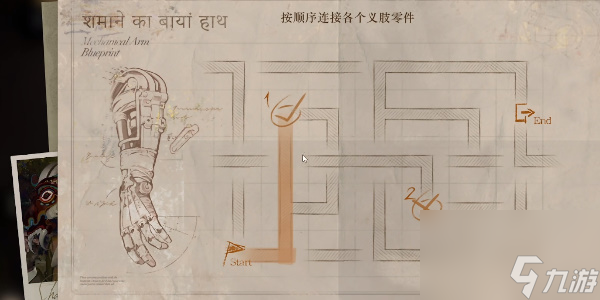 शमाने का बायां हाथ
按顺序连接各个义肢零件
Mechanical Arm
Blueprint
1
End
2
Start
九游